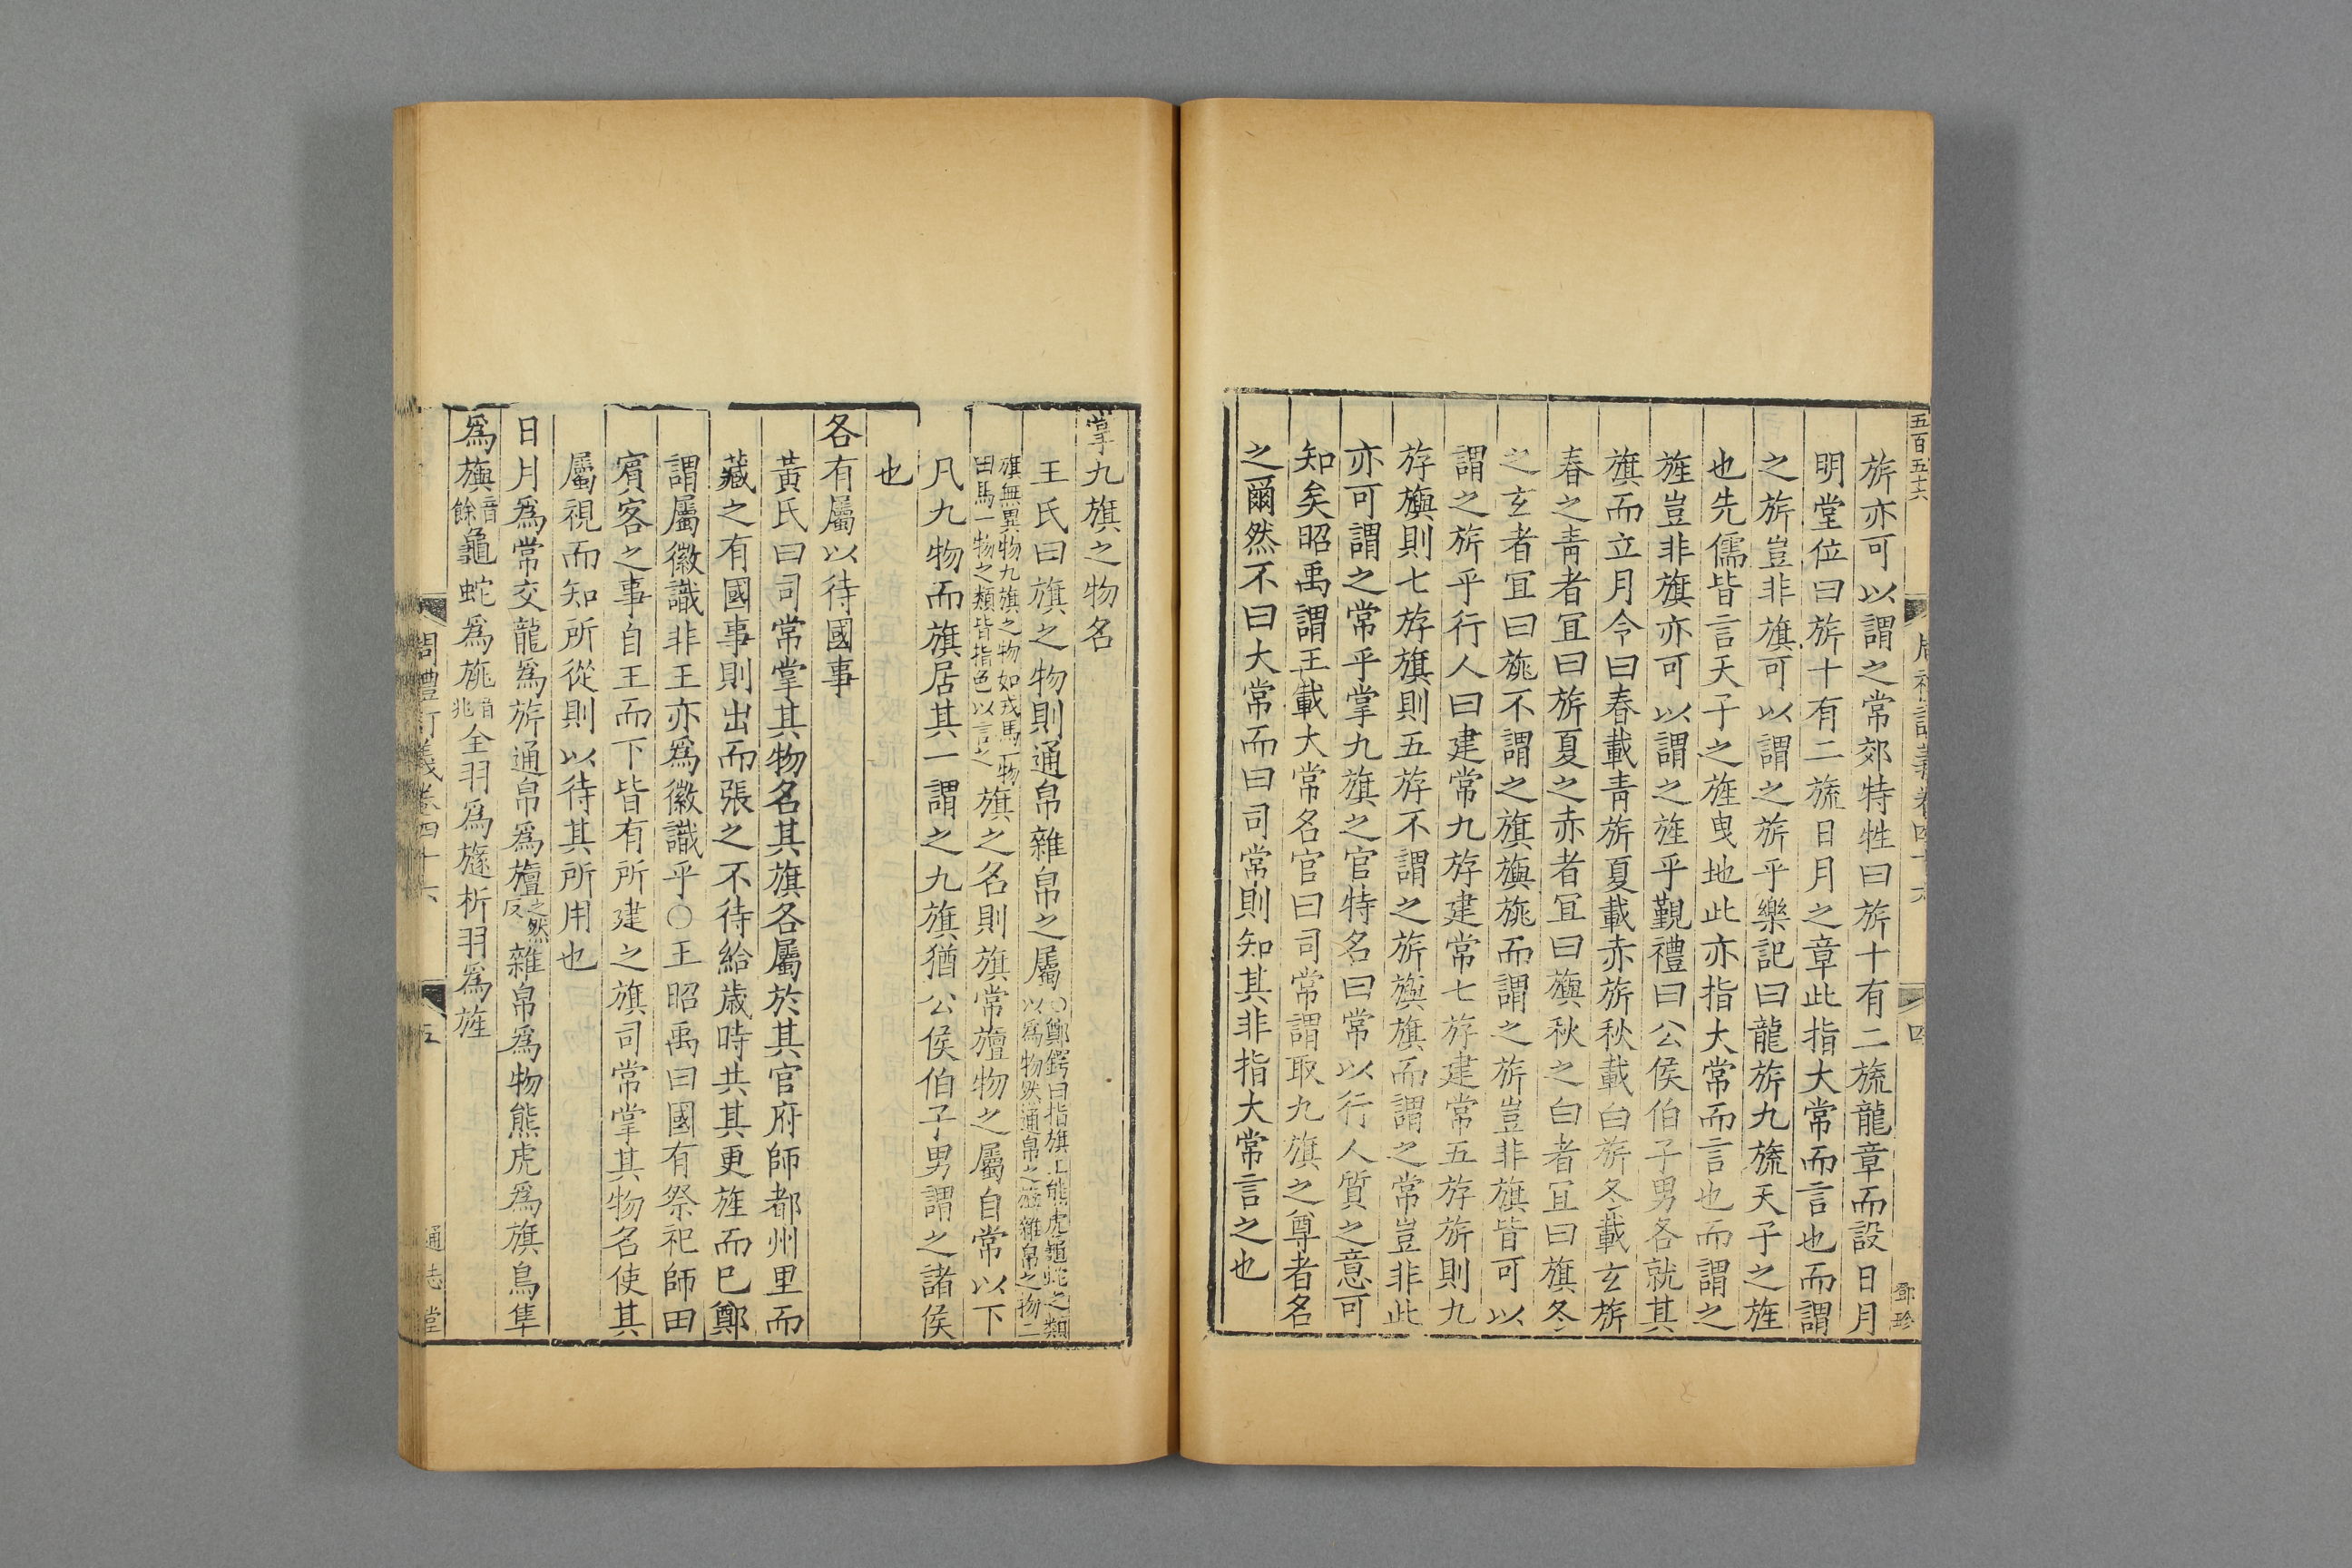 五百五十六
鄧珍
旂亦可以謂之常郊特牲曰旂十有二旒龍章而設日月
明堂位曰旂十有二旒日月之章此指大常而言也而謂
之旂豈非旗可以謂之旂乎樂記曰龍旂九旒天子之旌
也先儒皆言天子之旌曳地此亦指大常而言也而謂之
旌豈非旗亦可以謂之旌乎覲禮曰公侯伯子男各就其
旗而立月令曰春載青旂夏載赤旂秋載白旂冬載玄旂
春之青者冝曰旂夏之赤者冝曰旟秋之白者冝曰旗冬
之玄者冝曰旐不謂之旗旟旐而謂之旂豈非旗皆可以
謂之旂乎行人曰建常九斿建常七斿建常五斿旂則九
斿旟則七斿旗則五斿不謂之旂旟旗而謂之常豈非此
亦可謂之常乎掌九旗之官特名曰常以行人質之意可
知矣昭禹謂王載大常名官曰司常謂取九旗之尊者名
之爾然不曰大常而曰司常則知其非指大常言之也
掌九旗之物名
王氏曰旗之物則通帛雜帛之屬○鄭鍔曰指旗上熊虎龜蛇之類以爲物然通帛之旜雜帛之物二
旗無異物九旗之物如戎馬一物田馬一物之類皆指色以言之旗之名則旗常旜物之屬自常以下
凡九物而旗居其一謂之九旗猶公侯伯子男謂之諸侯
也
各有屬以待國事
黃氏曰司常掌其物名其旗各屬於其官府師都州里而
藏之有國事則出而張之不待給歲時共其更旌而已鄭
謂屬徽識非王亦爲徽識乎○王昭禹曰國有祭祀師田
賓客之事自王而下皆有所建之旗司常掌其物名使其
屬視而知所從則以待其所用也
日月爲常交龍爲旂通帛爲旜之然反雜帛爲物熊虎爲旗鳥隼
爲旟音餘龜蛇爲旐音兆全羽爲旞析羽爲旌
周禮訂義卷四十六
五
通志堂